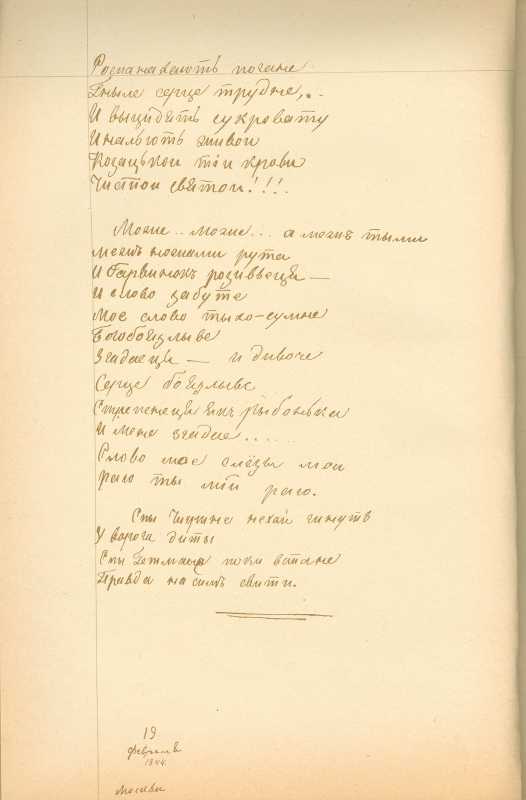 Роспанахають погане
Гныле серце трудне,..
И выцидять сукровату
И нальють живои
Козацькои тіи крови
Чистои святои!!!.
Може.. може... а межъ тыми
межъ ножами рута
И барвинокъ розивьеця —
И слово забуте
Мое слово тыхо-сумне
Богобоязлыве
Згадаеця — и дивоче
Серце боязлыве
Стрепенеця якъ рыбонька
И мене згадае.....
Слово мое слёзы мои
Раю ты мій раю.
Спы Чигрине нехай гинуть
У ворога диты
Спы Гетмане поки встане
Правда на симъ свити.
19
февраля
1844.
Москва